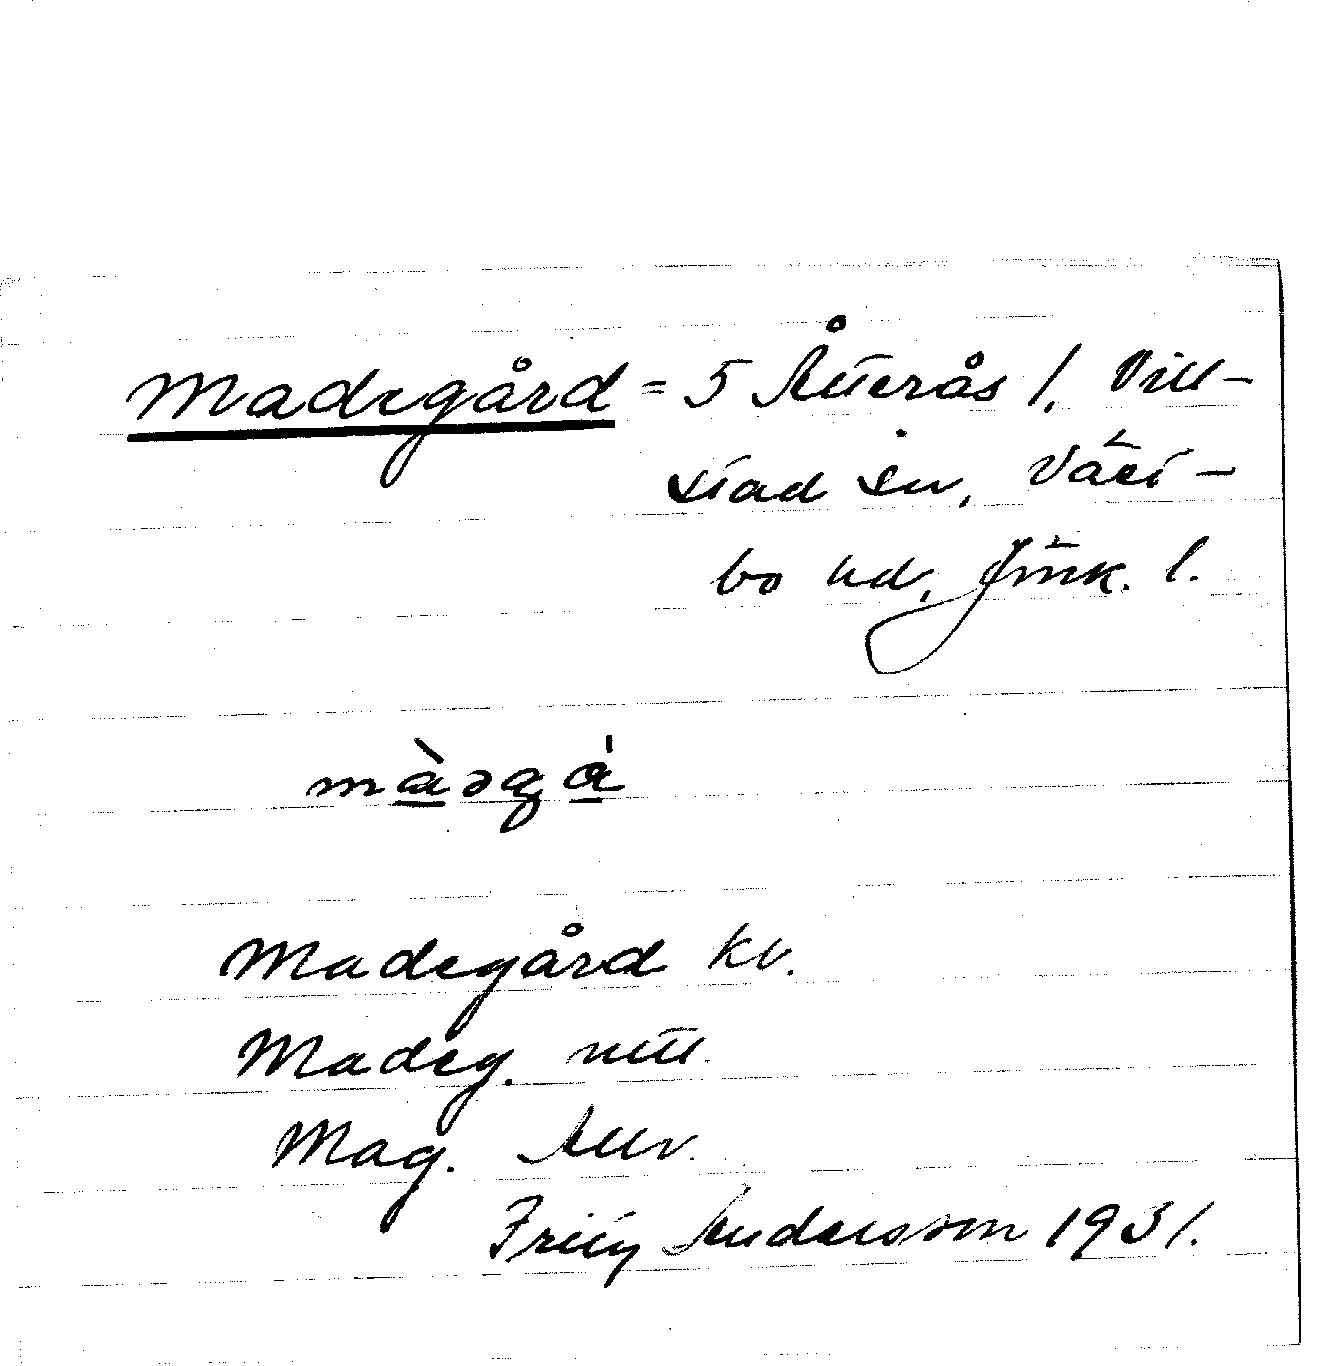 Madegård = 5 Åtterås 1, Vill-
stad sn, Västbo-
bo hd, Jönk. l.
màəgá
Madegård kv.
Madeg. utt.
Mag. Allm.
Fritz Andersson 1931.